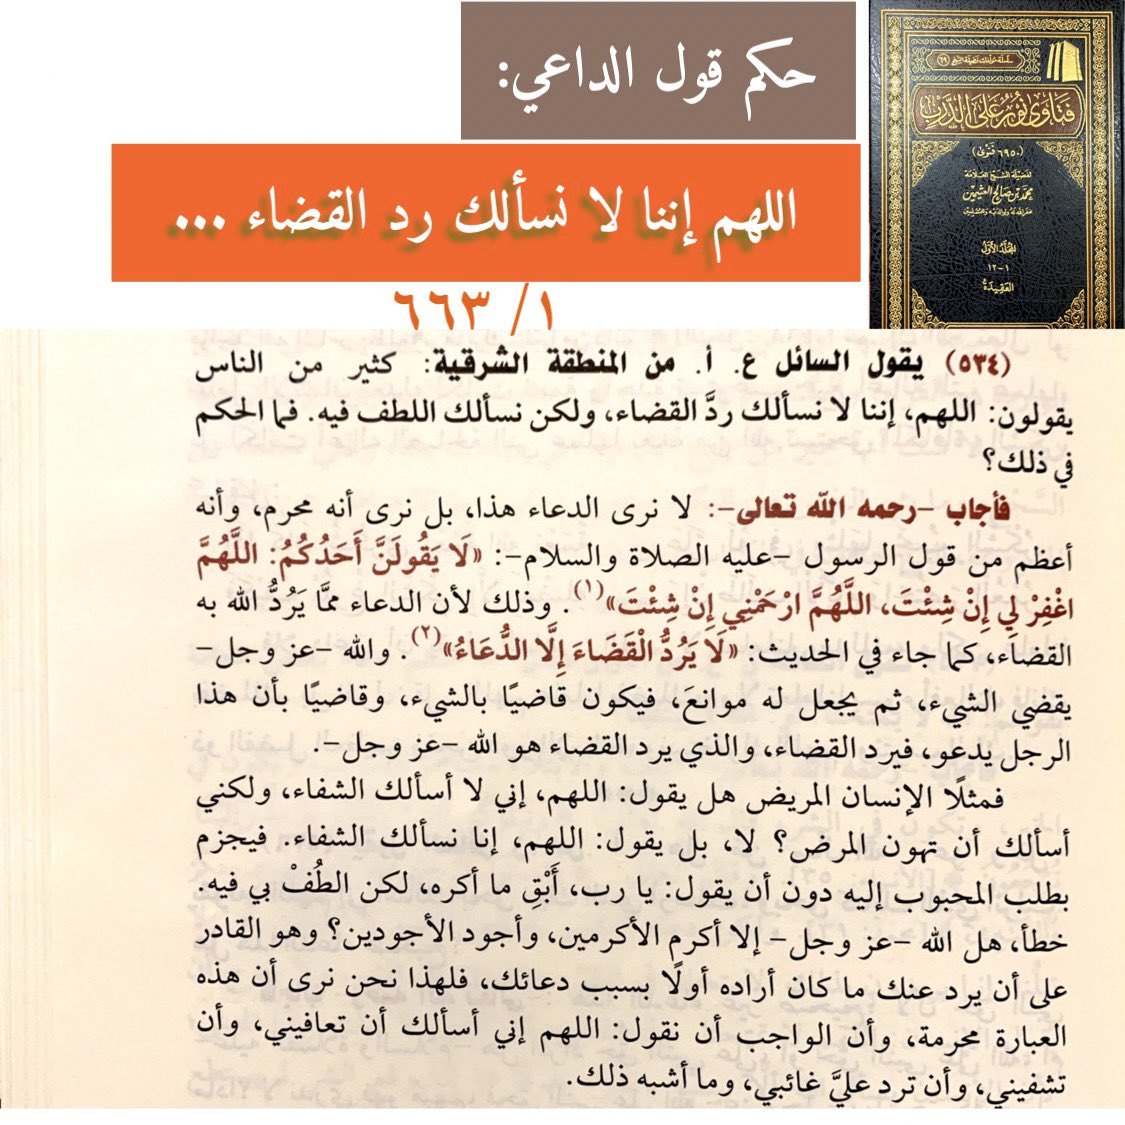 حكم قول الداعي:
اللهم إننا لا نسألك رد القضاء ...
١/ ٦٦٣
فتاوى نور على الدرب
(٦٩٥٠ فتوى)
لفضيلة الشيخ العلامة
محمد بن صالح العثيمين
غفر الله له ولوالديه وللمسلمين
المجلد الأول
١-١٢
العقيدة
(٥٣٤) يقول السائل ع. أ. من المنطقة الشرقية: كثير من الناس
يقولون: اللهم، إننا لا نسألك ردَّ القضاء، ولكن نسألك اللطف فيه. فما الحكم
في ذلك؟
فأجاب –رحمه الله تعالى–: لا نرى الدعاء هذا، بل نرى أنه محرم، وأنه
أعظم من قول الرسول –عليه الصلاة والسلام–: «لَا يَقُولَنَّ أَحَدُكُمُ: اللَّهُمَّ
اغْفِرْ لِي إِنْ شِئْتَ، اللَّهُمَّ ارْحَمْنِي إِنْ شِئْتَ»(١). وذلك لأن الدعاء ممَّا يَرُدُّ الله به
القضاء، كما جاء في الحديث: «لَا يَرُدُّ الْقَضَاءَ إِلَّا الدُّعَاءُ»(٢). والله –عز وجل–
يقضي الشيء، ثم يجعل له موانعَ، فيكون قاضيًا بالشيء، وقاضيًا بأن هذا
الرجل يدعو، فيرد القضاء، والذي يرد القضاء هو الله –عز وجل–.
فمثلًا الإنسان المريض هل يقول: اللهم، إني لا أسألك الشفاء، ولكني
أسألك أن تهون المرض؟ لا، بل يقول: اللهم، إنا نسألك الشفاء. فيجزم
بطلب المحبوب إليه دون أن يقول: يا رب، أَبْقِ ما أكره، لكن الطُفْ بي فيه.
خطأ، هل الله –عز وجل– إلا أكرم الأكرمين، وأجود الأجودين؟ وهو القادر
على أن يرد عنك ما كان أراده أولًا بسبب دعائك، فلهذا نحن نرى أن هذه
العبارة محرمة، وأن الواجب أن نقول: اللهم إني أسألك أن تعافيني، وأن
تشفيني، وأن ترد عليَّ غائبي، وما أشبه ذلك.